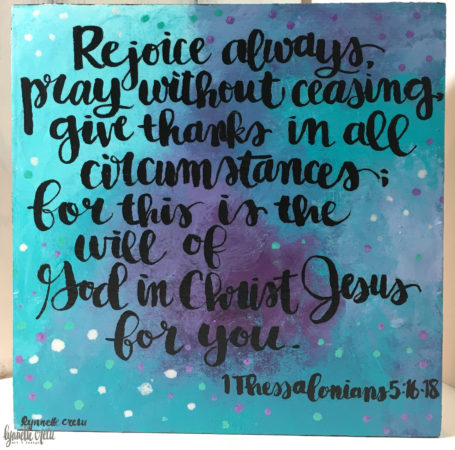 Rejoice always,
pray without ceasing,
give thanks in all
circumstances;
for this is the
will of
God in Christ Jesus
for you.
1 Thessalonians 5:16-18
lynnette cresu
lynnette cresu